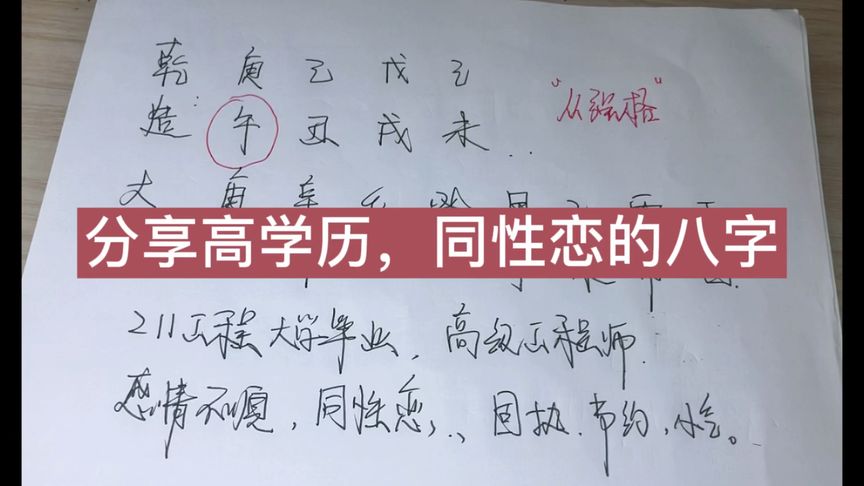 乾 庚 己 戊 己
造: 午 丑 戌 未
"从强格"
大 庚
分享高学历，同性恋的八字
211工程大学毕业，高级工程师
感情不顺，同性恋，固执.节约，小气。